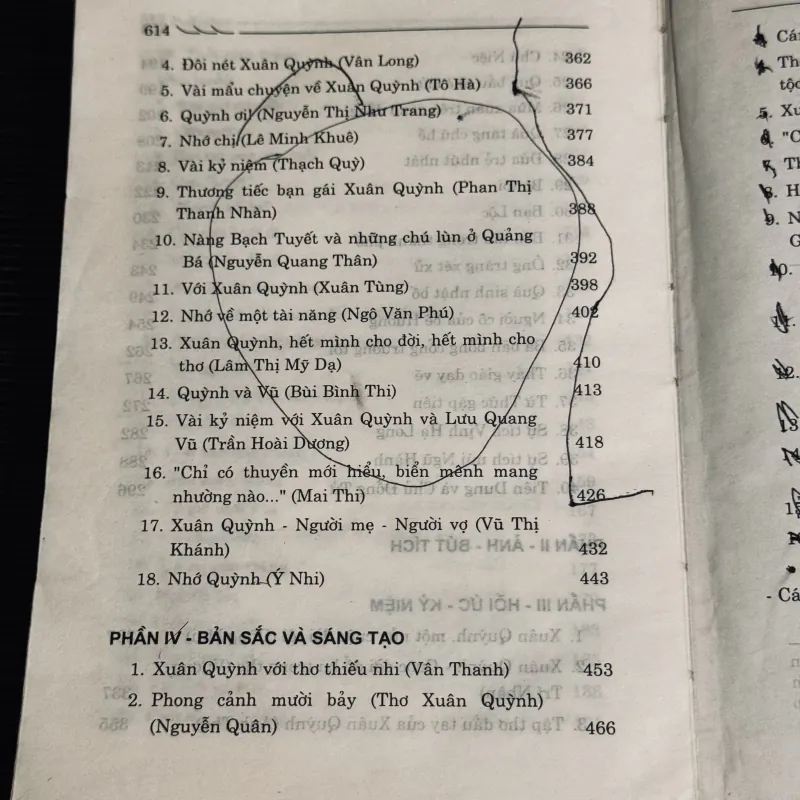 614
4. Đôi nét Xuân Quỳnh (Vân Long) 362
5. Vài mẩu chuyện về Xuân Quỳnh (Tô Hà) 366
6. Quỳnh ơi! (Nguyễn Thị Như Trang) 371
7. Nhớ chị (Lê Minh Khuê) 377
8. Vài kỷ niệm (Thạch Quỳ) 384
9. Thương tiếc bạn gái Xuân Quỳnh (Phan Thị
Thanh Nhàn) 388
10. Nàng Bạch Tuyết và những chú lùn ở Quảng
Bá (Nguyễn Quang Thân) 392
11. Với Xuân Quỳnh (Xuân Tùng) 398
12. Nhớ về một tài năng (Ngô Văn Phú) 402
13. Xuân Quỳnh, hết mình cho đời, hết mình cho
thơ (Lâm Thị Mỹ Dạ) 410
14. Quỳnh và Vũ (Bùi Bình Thi) 413
15. Vài kỷ niệm với Xuân Quỳnh và Lưu Quang
Vũ (Trần Hoài Dương) 418
16. "Chỉ có thuyền mới hiểu, biển mênh mang
nhường nào..." (Mai Thi) 426
17. Xuân Quỳnh - Người mẹ - Người vợ (Vũ Thị
Khánh) 432
18. Nhớ Quỳnh (Ý Nhi) 443
PHẦN IV - BẢN SẮC VÀ SÁNG TẠO
1. Xuân Quỳnh với thơ thiếu nhi (Vân Thanh) 453
2. Phong cảnh mười bảy (Thơ Xuân Quỳnh)
(Nguyễn Quân) 466
Th
tộc
5. Xu
"C
Th
H
N
G
10.
12.
- Cá